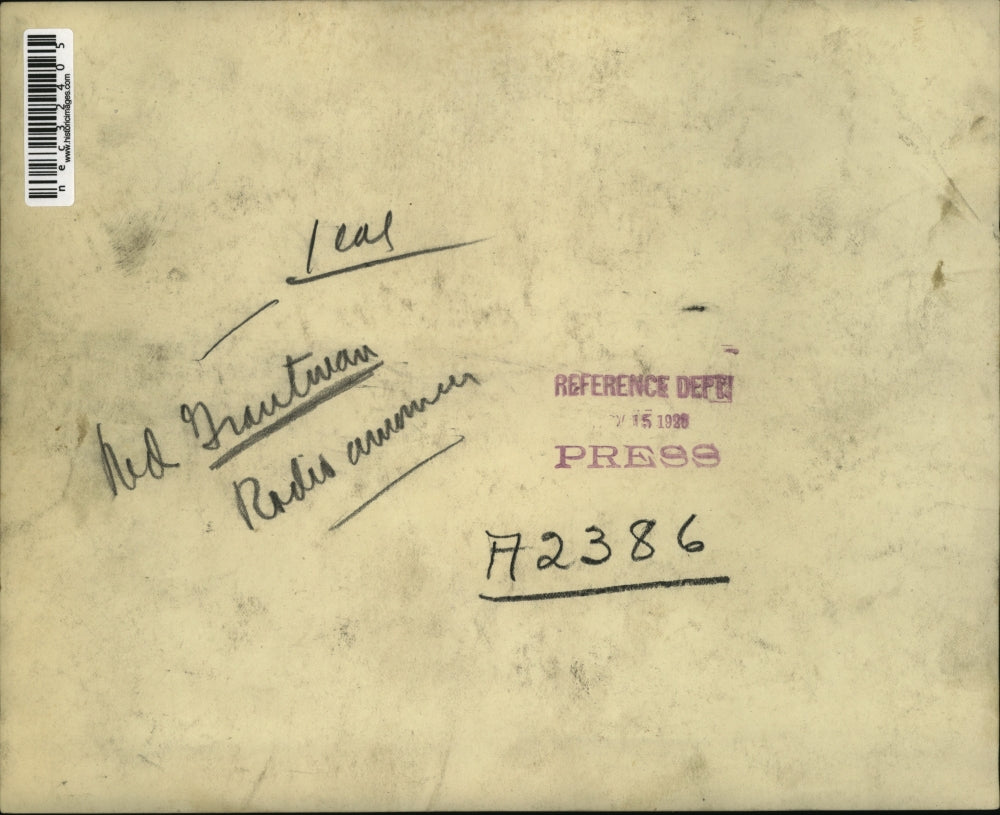 nec32405
www.historicimages.com
1 col
Ned Trautman
Radio announcer
REFERENCE DEPT.
15 1928
PRESS
A2386